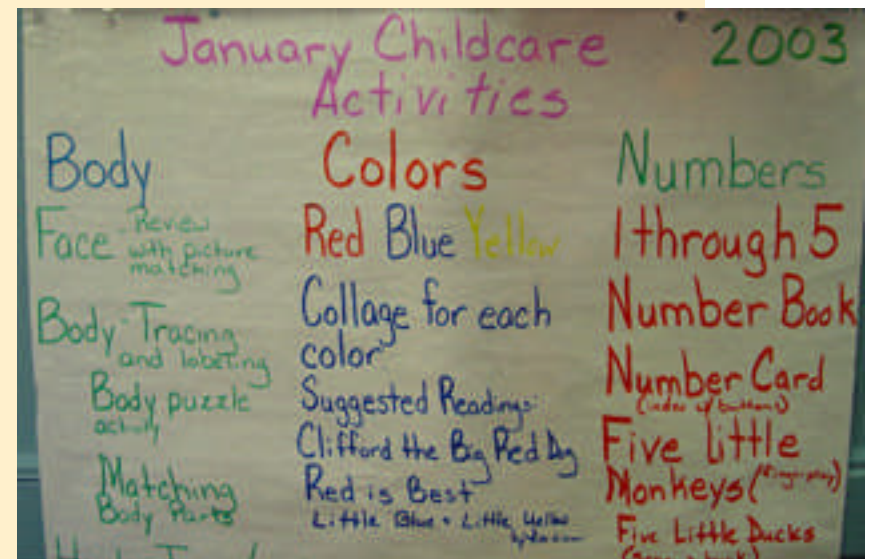 January Childcare 2003
Activities
Body
Face Review
with picture
matching
Body Tracing
and labeling
Body puzzle
activity
Matching
Body Parts
Colors
Red Blue Yellow
Collage for each
color
Suggested Readings:
Clifford the Big Red Dog
Red is Best
Little Blue + Little Yellow
Numbers
1 through 5
Number Book
Number Card
(index w/ buttons)
Five little
Monkeys (fingerplay)
Five Little Ducks